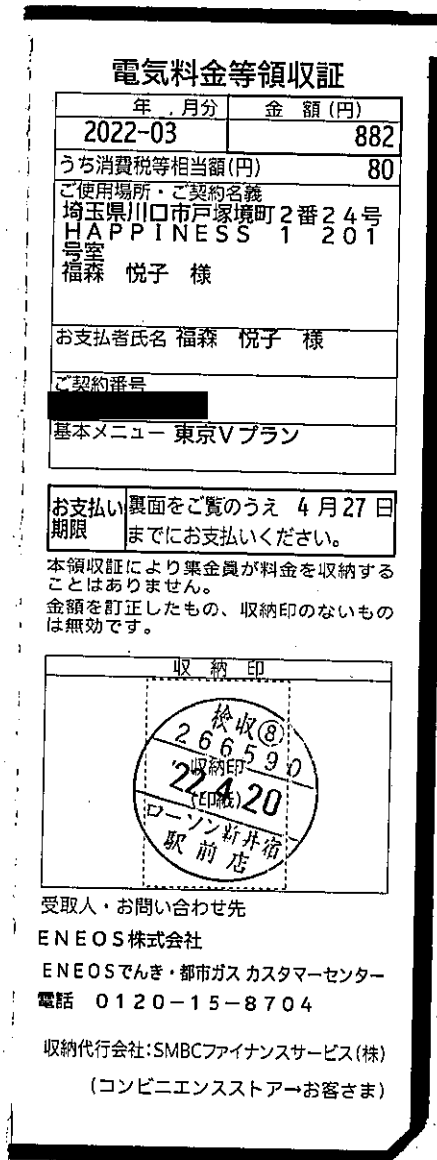 電気料金等領収証
年 月分 金 額(円)
2022-03 882
うち消費税等相当額(円) 80
ご使用場所・ご契約名義
埼玉県川口市戸塚境町2番24号
HAPPINESS 1 201
号室
福森 悦子 様
お支払者氏名 福森 悦子 様
ご契約番号
基本メニュー 東京Vプラン
お支払い期限 裏面をご覧のうえ 4月27日
までにお支払いください。
本領収証により集金員が料金を収納する
ことはありません。
金額を訂正したもの、収納印のないもの
は無効です。
収 納 印
検収⑧
266590
収納印
'22.4.20
(印紙)
ローソン新井宿
駅前店
受取人・お問い合わせ先
ENEOS株式会社
ENEOSでんき・都市ガス カスタマーセンター
電話 0120-15-8704
収納代行会社:SMBCファイナンスサービス(株)
(コンビニエンスストア→お客さま)